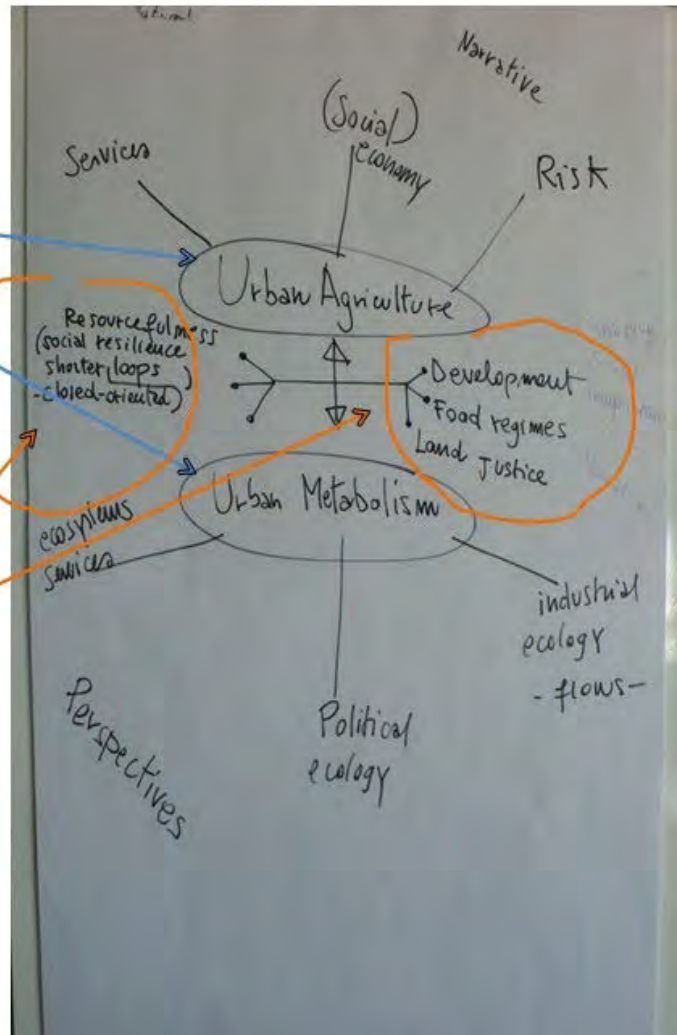 Narrative
(Social)
economy
Services
Risk
Urban Agriculture
Resourcefulness
(social resilience
shorter loops )
-closed-oriented)
Development
Food regimes
Land Justice
Urban Metabolism
services
industrial
ecology
- flows -
Political
ecology
Perspectives